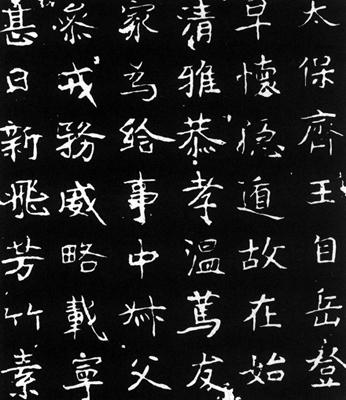 太保齊王自岳登
早懷隱遁故在始
清雅恭孝溫篤友
家為給事中叔父
叅戎務威略載寧
甚日新飛芳竹素